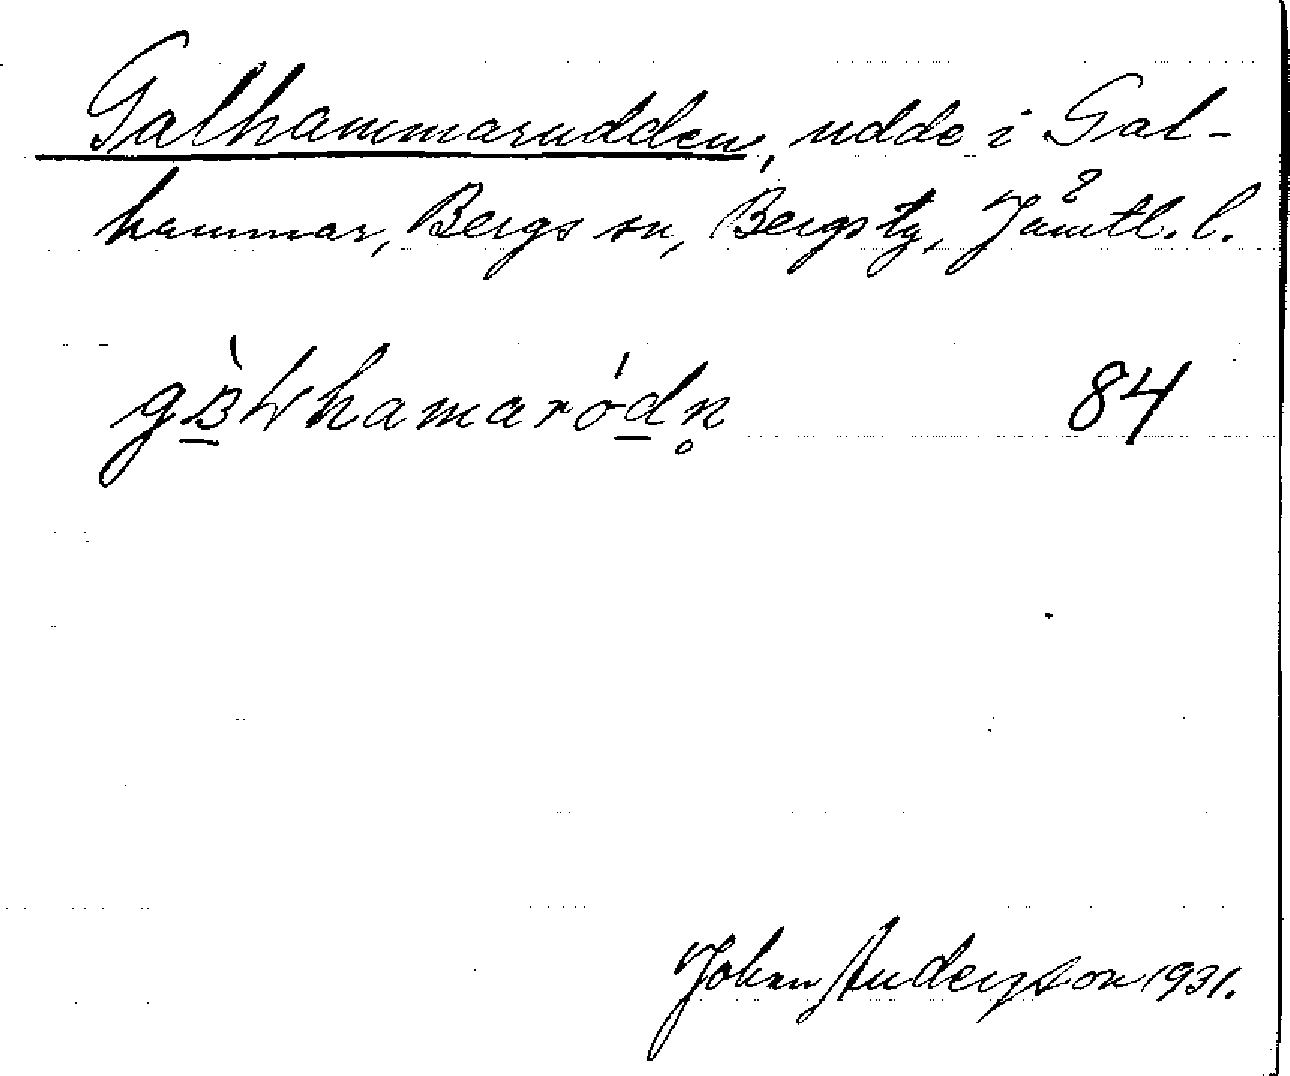 Galhammarudden, udde i Gal-
hammar, Bergs sn, Bergs tg, Jämtl. l.
84
Johan Anderson 1931.